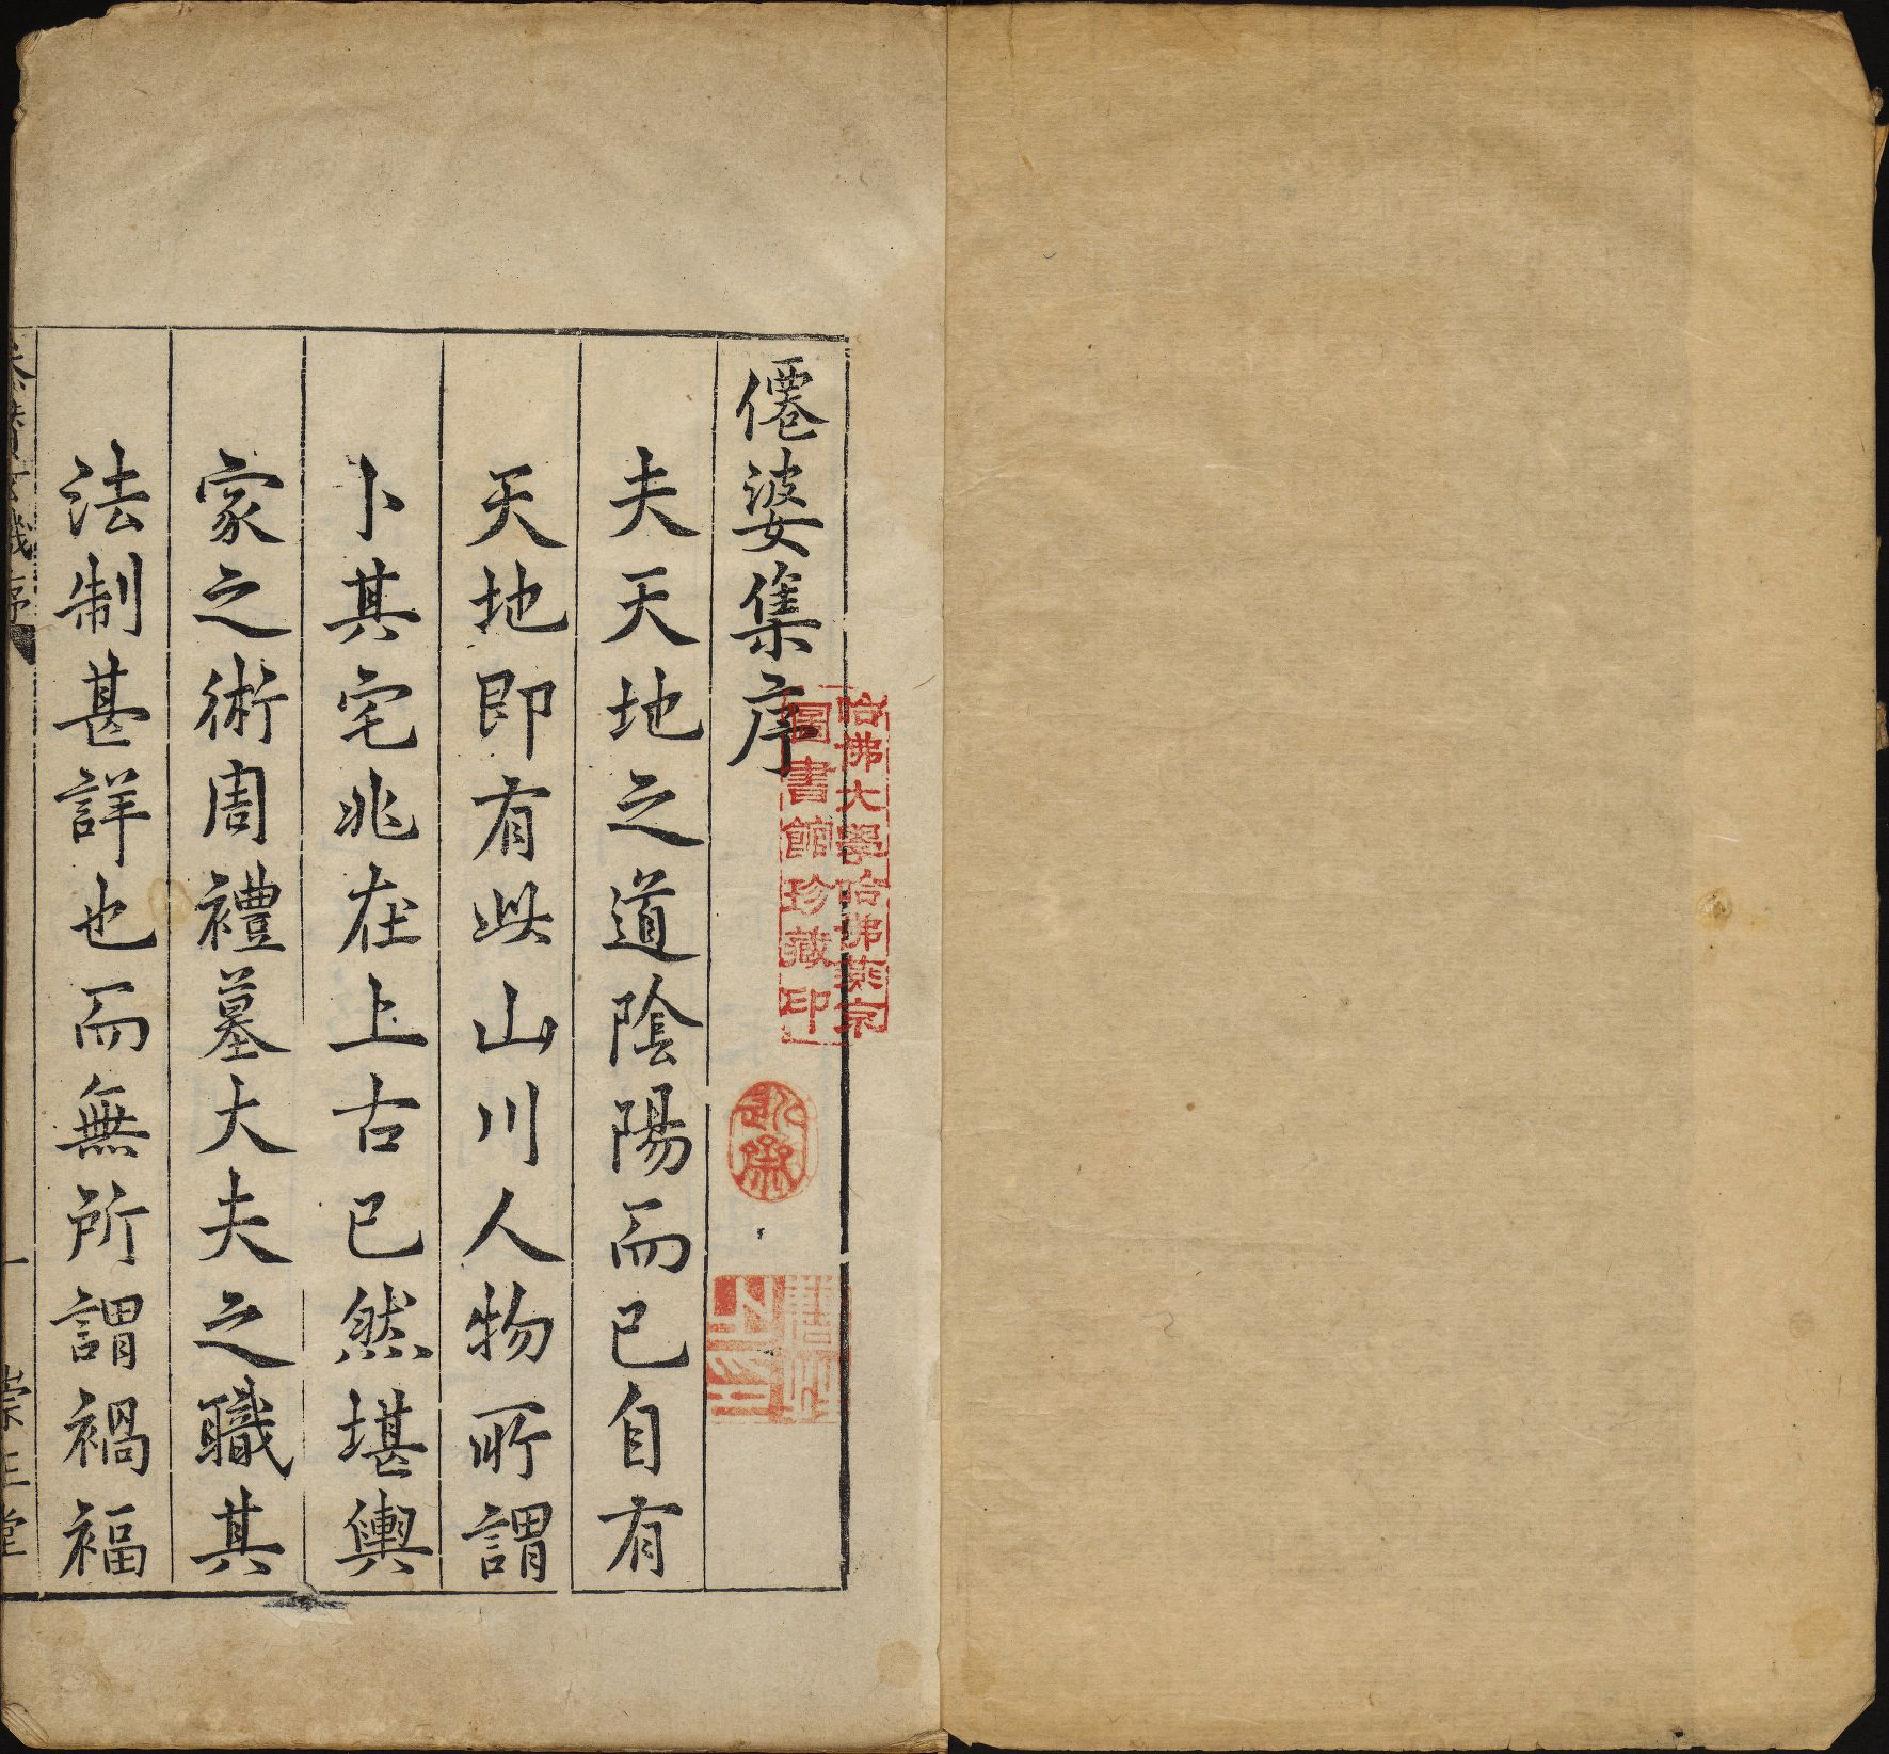 僊婆集序
夫天地之道陰陽而已自有
天地即有此山川人物所謂
卜其宅兆在上古已然堪輿
家之術周禮墓大夫之職其
法制甚詳也而無所謂禍福
哈佛大學哈佛燕京
圖書館珍藏印
序
一
崇正堂